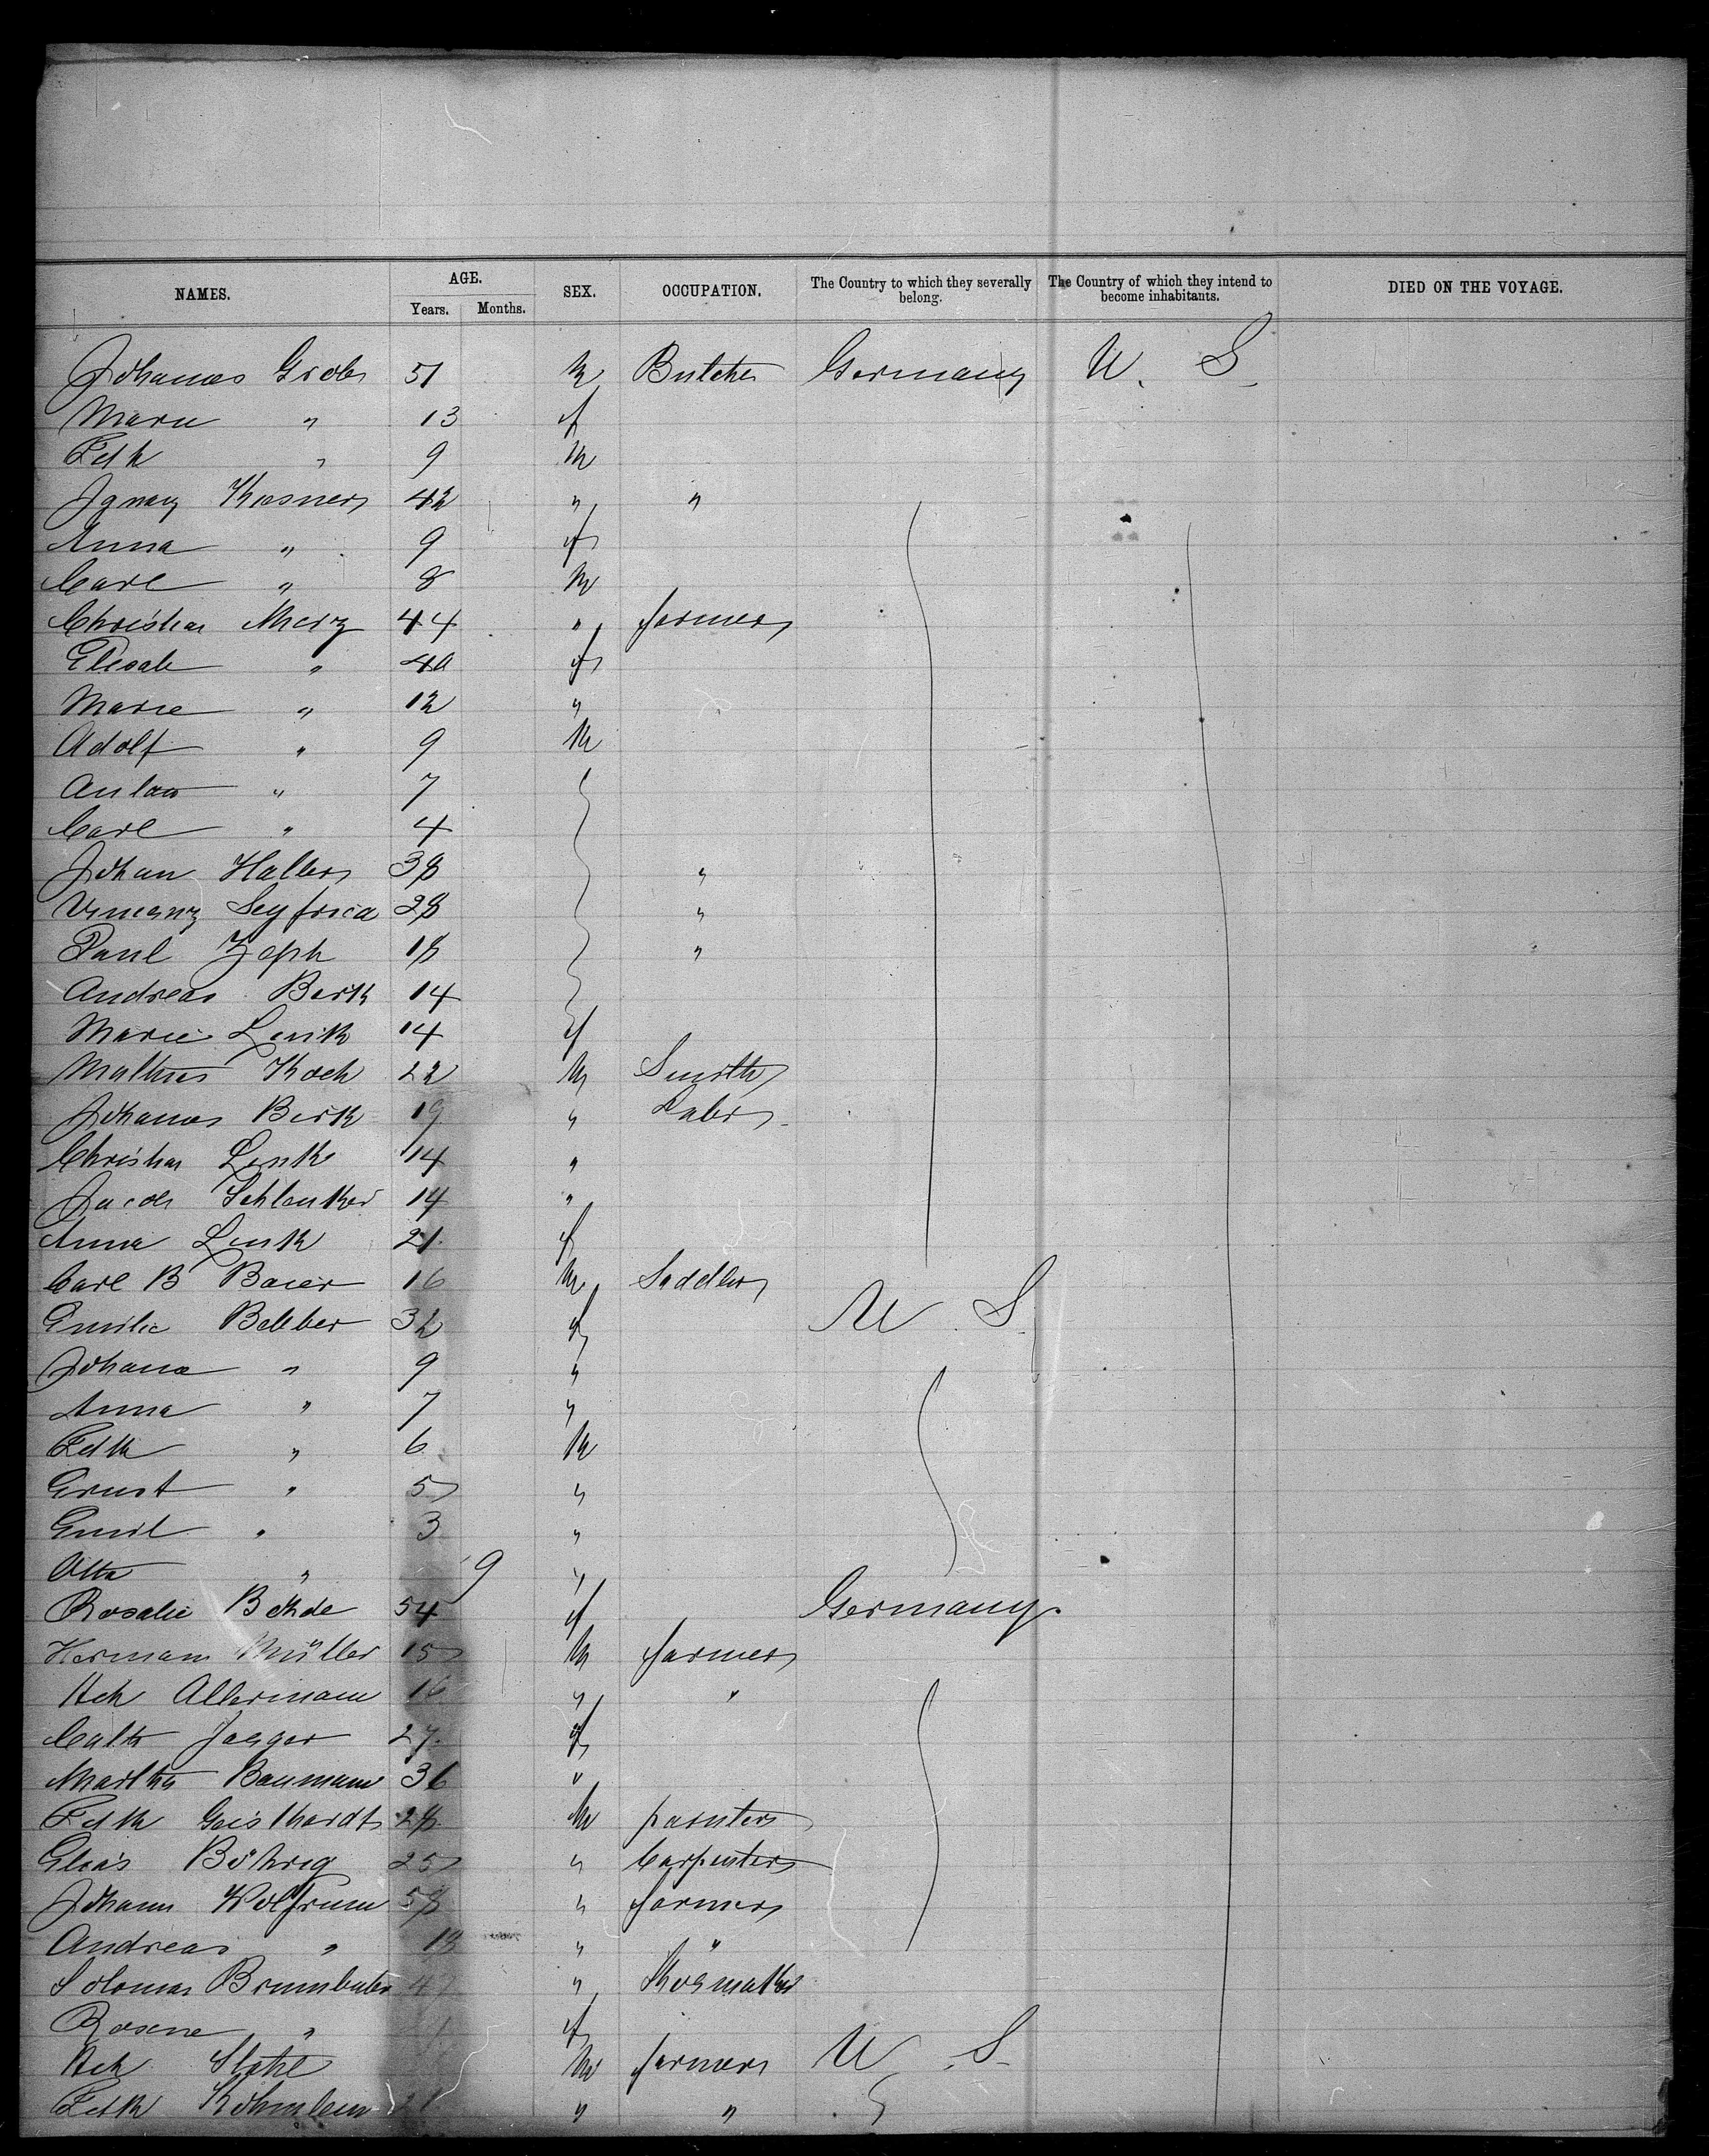 NAMES. AGE. SEX. OCCUPATION. The Country to which they severally belong. The Country of which they intend to become inhabitants. DIED ON THE VOYAGE.
Years. Months.
Johannes Grob 51 M Butcher Germany U. S.
Marie " 13 f
Fdk " 9 M
Ignaz Kasner 42 " "
Anna " 9 f
Carl " 8 M
Christian Merz 44 " farmer
Elisab " 40 f
Marie " 12 "
Adolf " 9 M
Anton " 7
Carl " 4
Johan Haller 38 "
Seyfried 28 "
Paul Zeph 18 "
Andreas Berk 14
Marie Link 14 f
Mathias Koch 22 M Smith
Johannes Berk 19 " Labr
Christian Link 14 "
Jacob Schlenker 14 "
Anna Link 21 f
Carl B Baier 16 M Saddler
Emilie Bebber 32 f U. S.
Johana " 9 "
Anna " 7 "
Fdk " 6 M
Ernst " 5 "
Emil " 3 "
Otto " 9 "
Rosalie Bohde 54 f Germany.
Herman Müller 15 M farmer
Hch Allermann 16 " "
Jaeger 27 f
Martha Baumann 36 "
Fdk Geislhardt 28 M painter
Elias Böhrig 25 " Carpenter
Johann Wolfrum 58 " farmer
Andreas " 18 " "
Soloman 47 " Shoemaker
Rosene " f
Hch Stahl M farmer U. S.
Fdk 21 " "